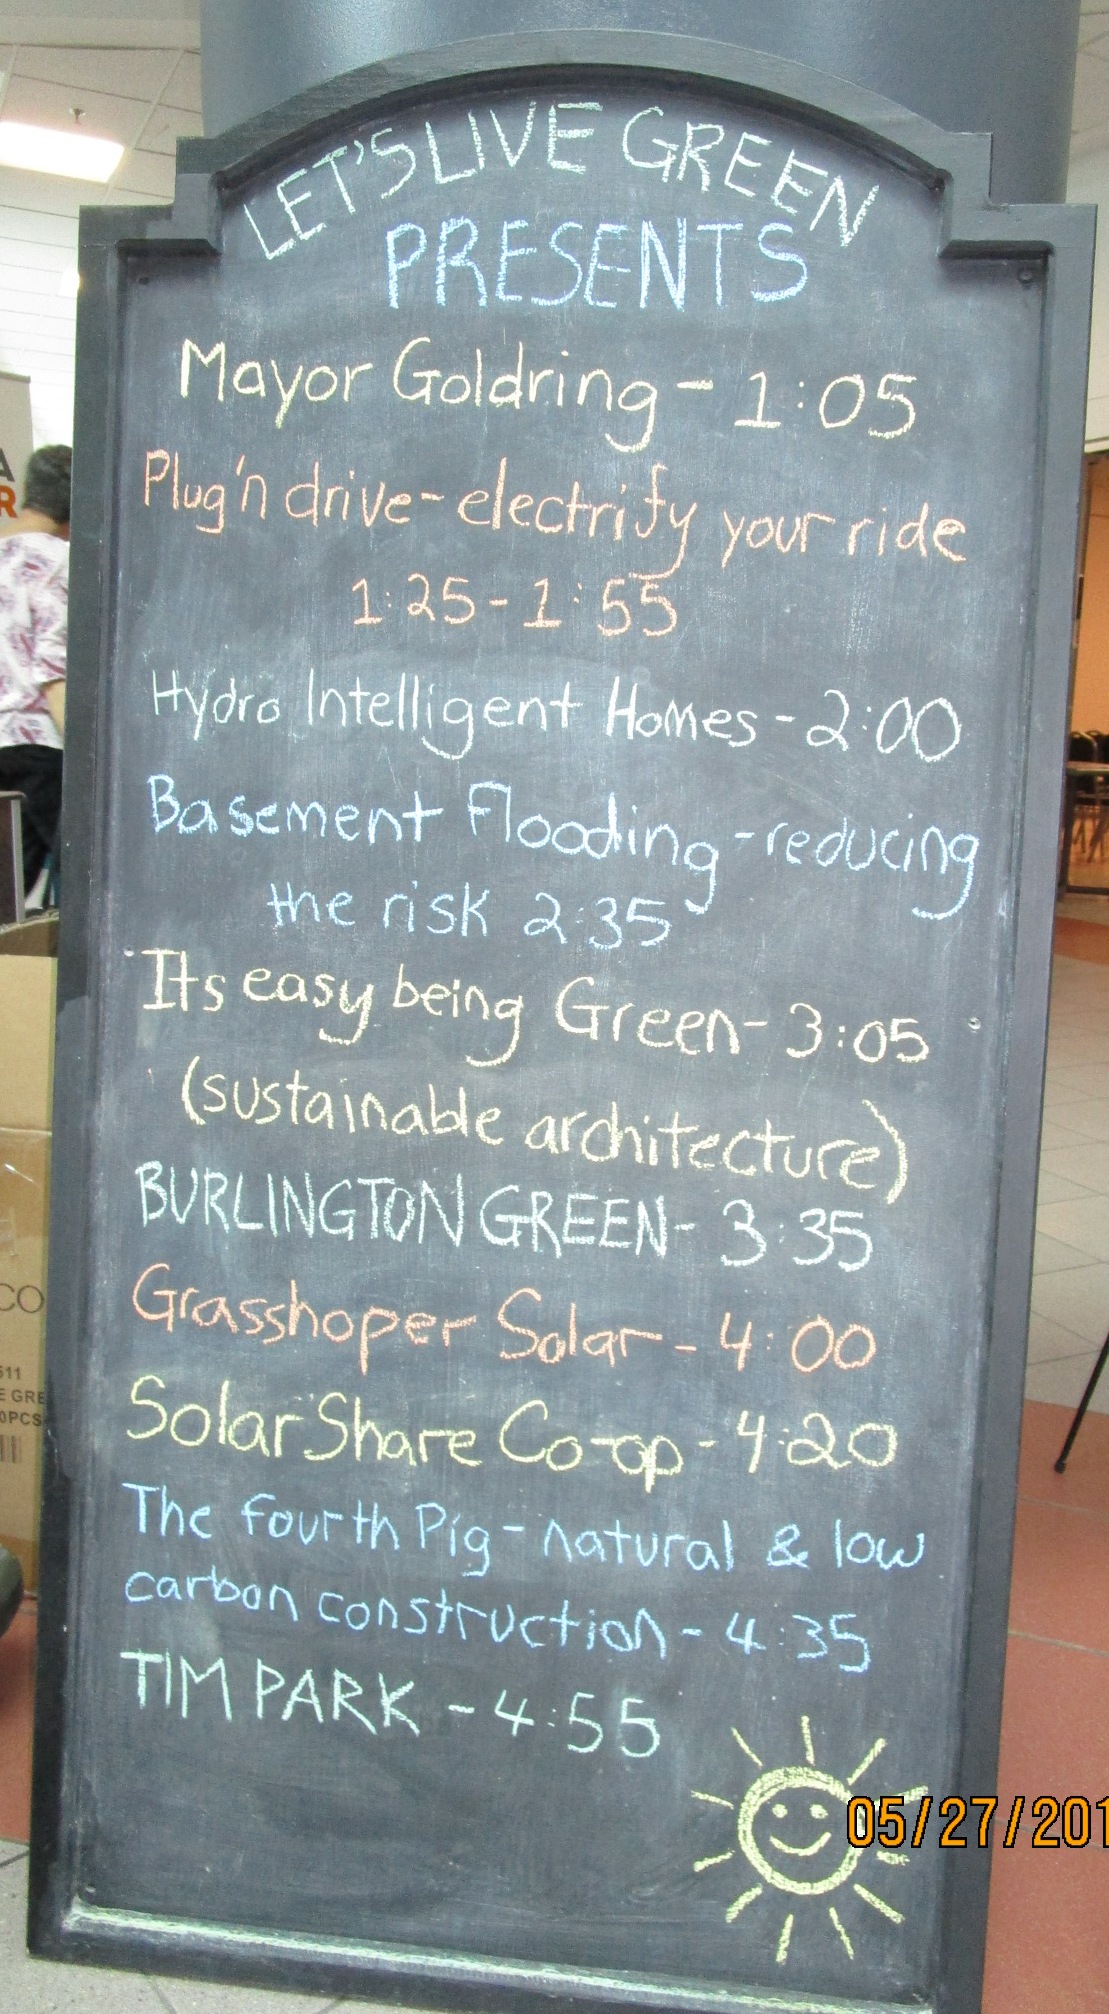 LET'S LIVE GREEN
PRESENTS
Mayor Goldring - 1:05
Plug'n drive - electrify your ride
1:25 - 1:55
Hydro Intelligent Homes - 2:00
Basement Flooding - reducing
the risk 2:35
Its easy being Green - 3:05
(sustainable architecture)
BURLINGTON GREEN - 3:35
Grasshoper Solar - 4:00
SolarShare Co-op - 4:20
The fourth Pig - natural & low
carbon construction - 4:35
TIM PARK - 4:55
05/27/201
A
R
CO
511
E GRE
0PCS